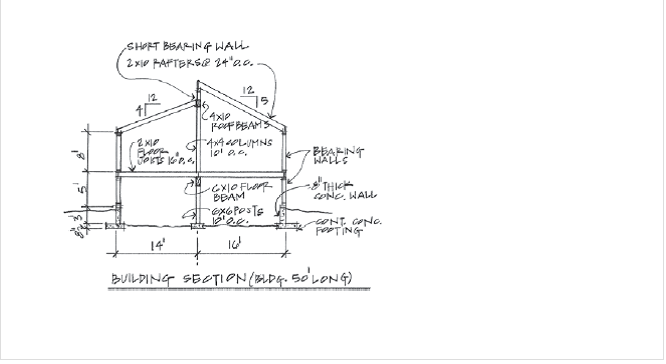 SHORT BEARING WALL
2X10 RAFTERS @ 24" O.C.
12
4
12
5
4X10
ROOF BEAMS
2X10
FLOOR
JOISTS 16" O.C.
4X4 COLUMNS
10' O.C.
BEARING
WALLS
8'
5'
3'
8"
6X10 FLOOR
BEAM
8" THICK
CONC. WALL
6X6 POSTS
10' O.C.
CONT. CONC.
FOOTING
14'
16'
BUILDING SECTION (BLDG. 50' LONG)